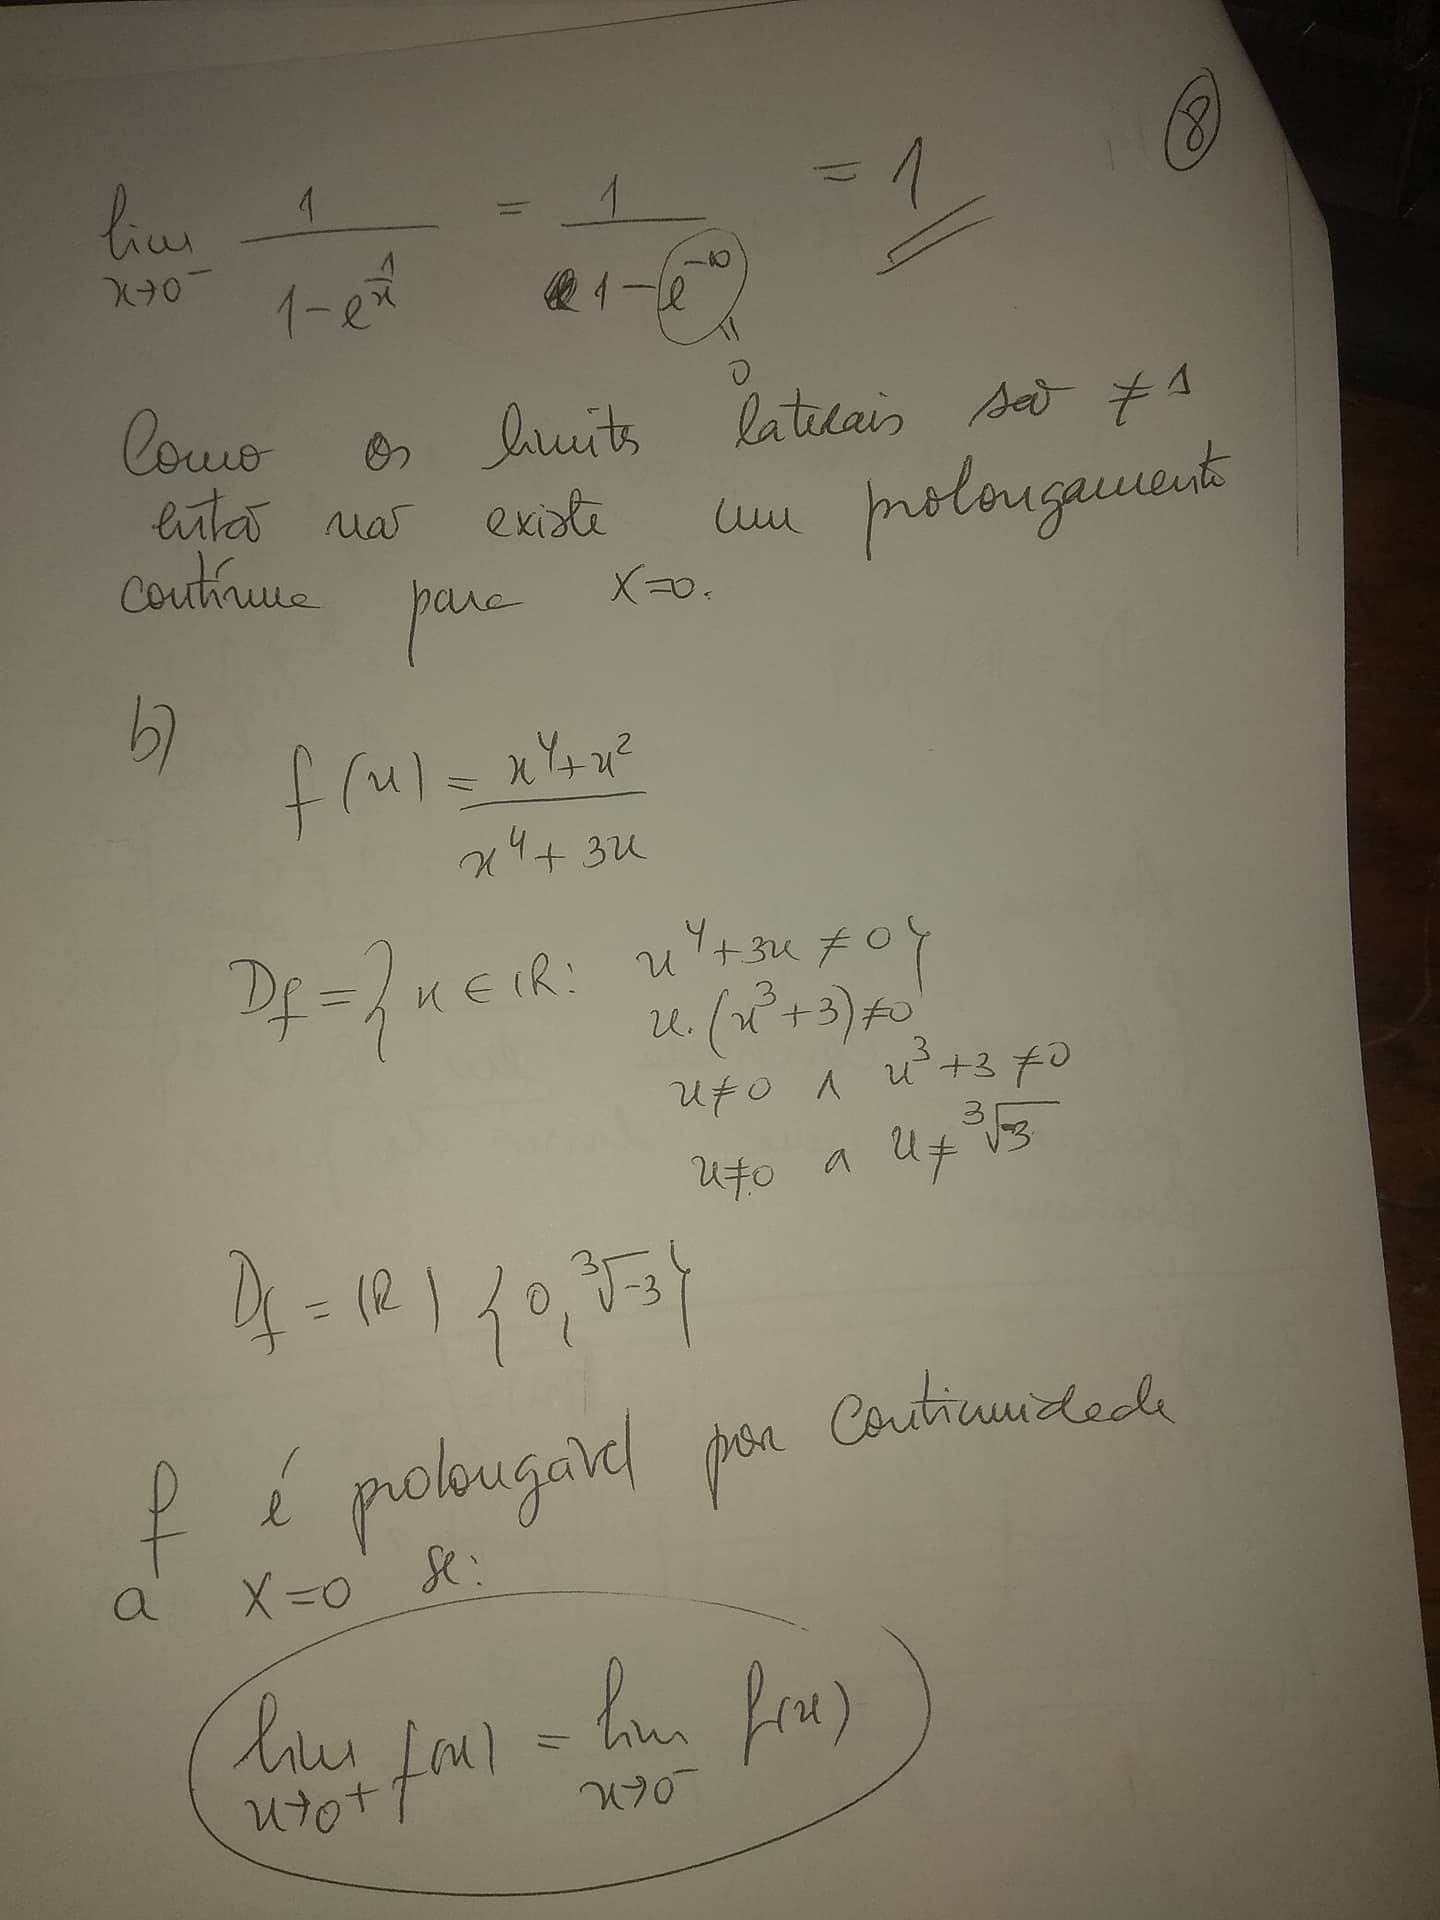 8
lim x→0⁻ 1/(1-e^(1/x)) = 1/(1-e^(-∞)) = 1
0
Como os limites laterais são ≠s
então não existe um prolongamento
contínuo para x=0.
b)
f(x) = (x⁴+x²)/(x⁴+3x)
Df = {x ∈ IR: x⁴+3x ≠ 0}
x.(x³+3) ≠ 0
x≠0 ∧ x³+3 ≠ 0
x≠0 ∧ x≠ ³√-3
Df = IR \ {0, ³√-3}
f é prolongável por continuidade
a x=0 se:
lim x→0⁺ f(x) = lim x→0⁻ f(x)